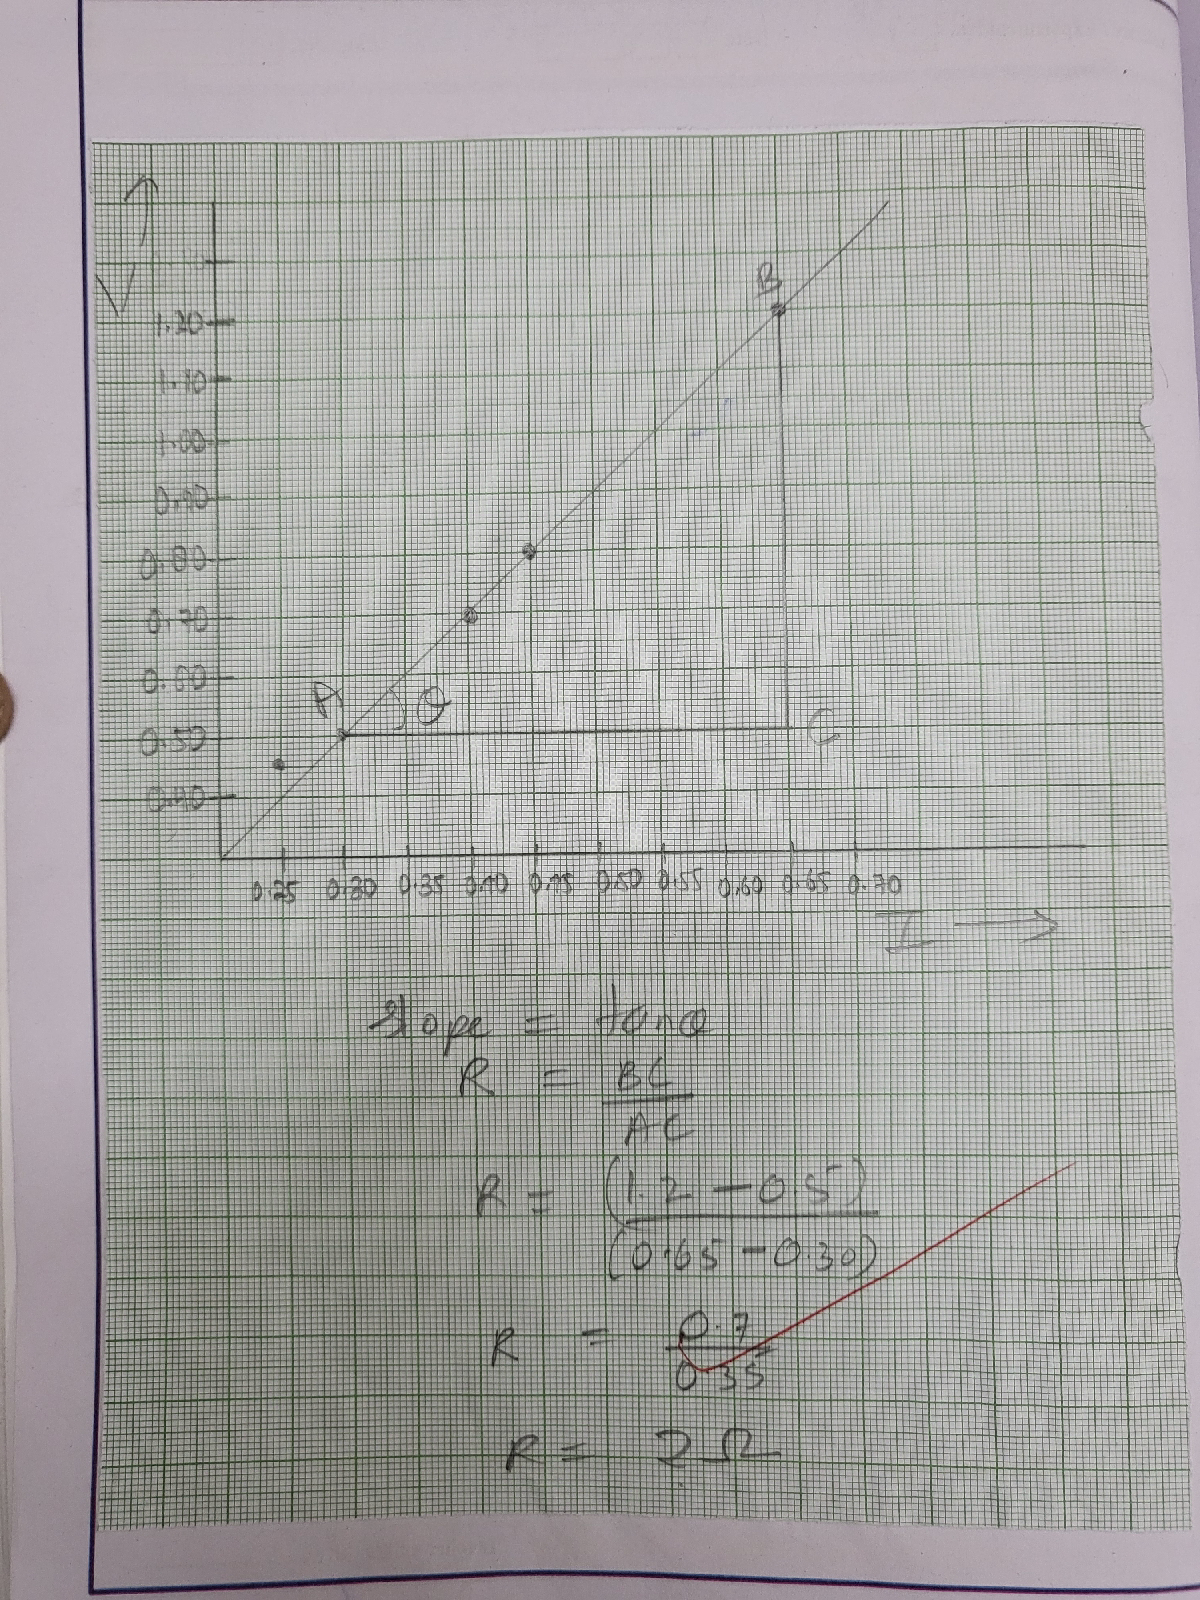 V
1.20
1.10
1.00
0.90
0.80
0.70
0.60
0.50
0.40
B
A
θ
C
0.25 0.30 0.35 0.40 0.45 0.50 0.55 0.60 0.65 0.70
I
Slope = tanθ
R = BC
AC
R = (1.2 - 0.5)
(0.65 - 0.30)
R = 0.7
0.35
R = 2Ω